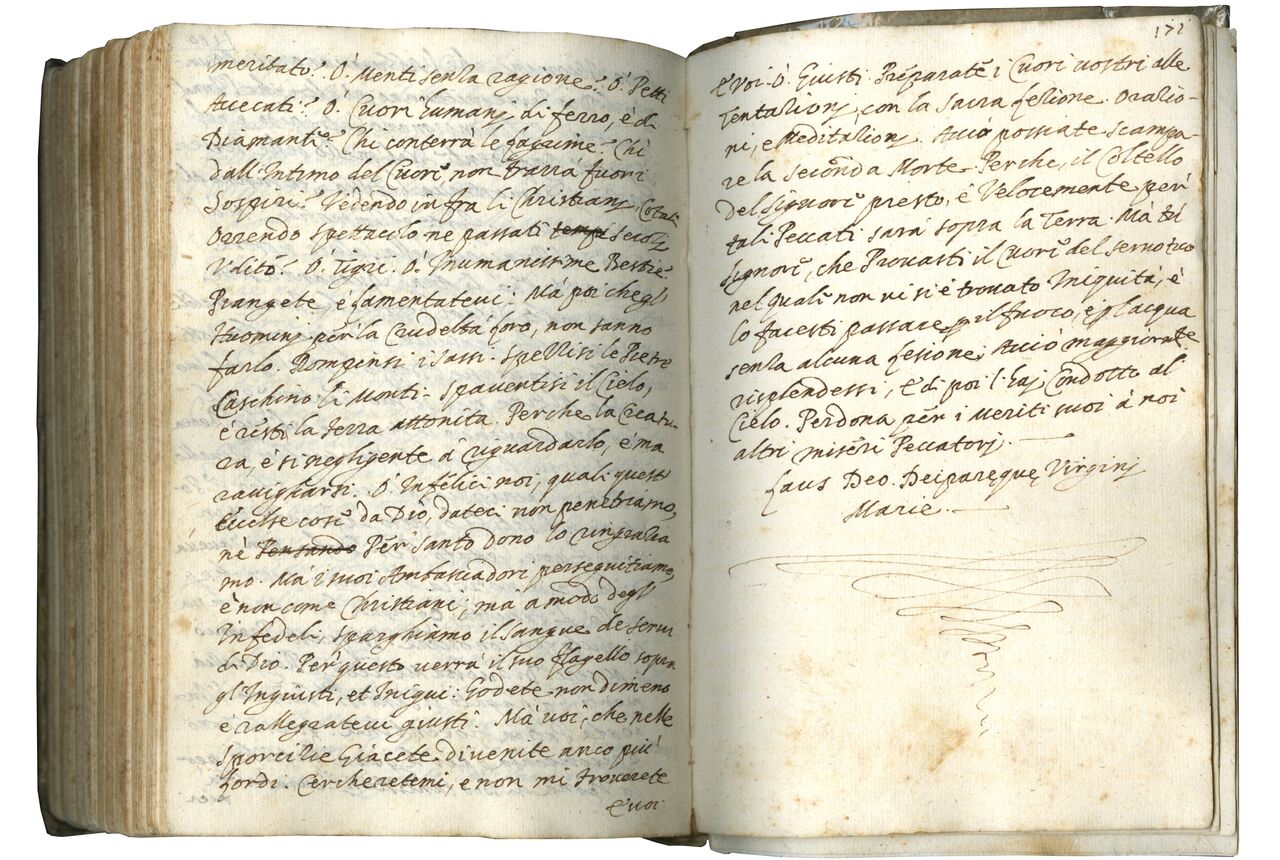 meritato? O' Menti senza ragione? O' Petti
Acecati? O' Cuori humanj di ferro, è di
Diamanti? Chi conterrà le lagrime? Chi
dall'Intimo del Cuore non trarrà fuori
Sospiri? Vedendo in fra li Christianj Cotali
Orrendo spettacolo ne passati tempi secoli
Udito? O' Tigri. O' Inumanissime Bestie?
Piangete, è lamentatevi: Mà poi che gl'
Huominj per la Crudeltà loro, non sanno
farlo. Rompensi i sassi. Spellisi le Pietre
Caschino li Monti. Spaventisi il Cielo,
è resti la Terra attonita. Perche la Creatu-
ra, è si negligente à riguardarlo, è ma
ravigliarsi. O' Infelici noi, quali questi
Eccelse cose da Dio, dateci non penetriamo,
nè Pensando Per santo dono lo ringratia
mo. Mà i suoi Ambasciadori perseguitiamo,
è non come Christiani; mà a modo degl'
Infedeli, sparghiamo il sangue de servi
di Dio. Per questo verrà il suo flagello sopra
gl'Ingiusti, et Iniqui: Godete non dimeno
è rallegratevi giusti. Mà voi, che nelle
Sporcitie Giacete, divenite anco più
lordi. Cercheretemi, e non mi troverete
E voi
171
E Voi O' Giusti Preparate i Cuori vostri alle
Tentationj, con la sacra lezione. Oratio-
ni, e Meditationj. Acciò possiate scampa-
re la seconda Morte. Perche, il Coltello
del Signore presto, è Velocemente per
tali Peccati sarà sopra la Terra. Mà tù
Signore, che Provasti il Cuore del servo tuo
nel quale non vi si è trovato Iniquità, è
lo facesti passare p il fuoco, è p l'acqua
senza alcuna lesione; Acciò maggiormte
risplendessi, E di poi l'haj Condotto al
Cielo. Perdona per i Meriti suoi à noi
altri miseri Peccatorj.
Laus Deo. Deiparęquę Virginj
Marie.